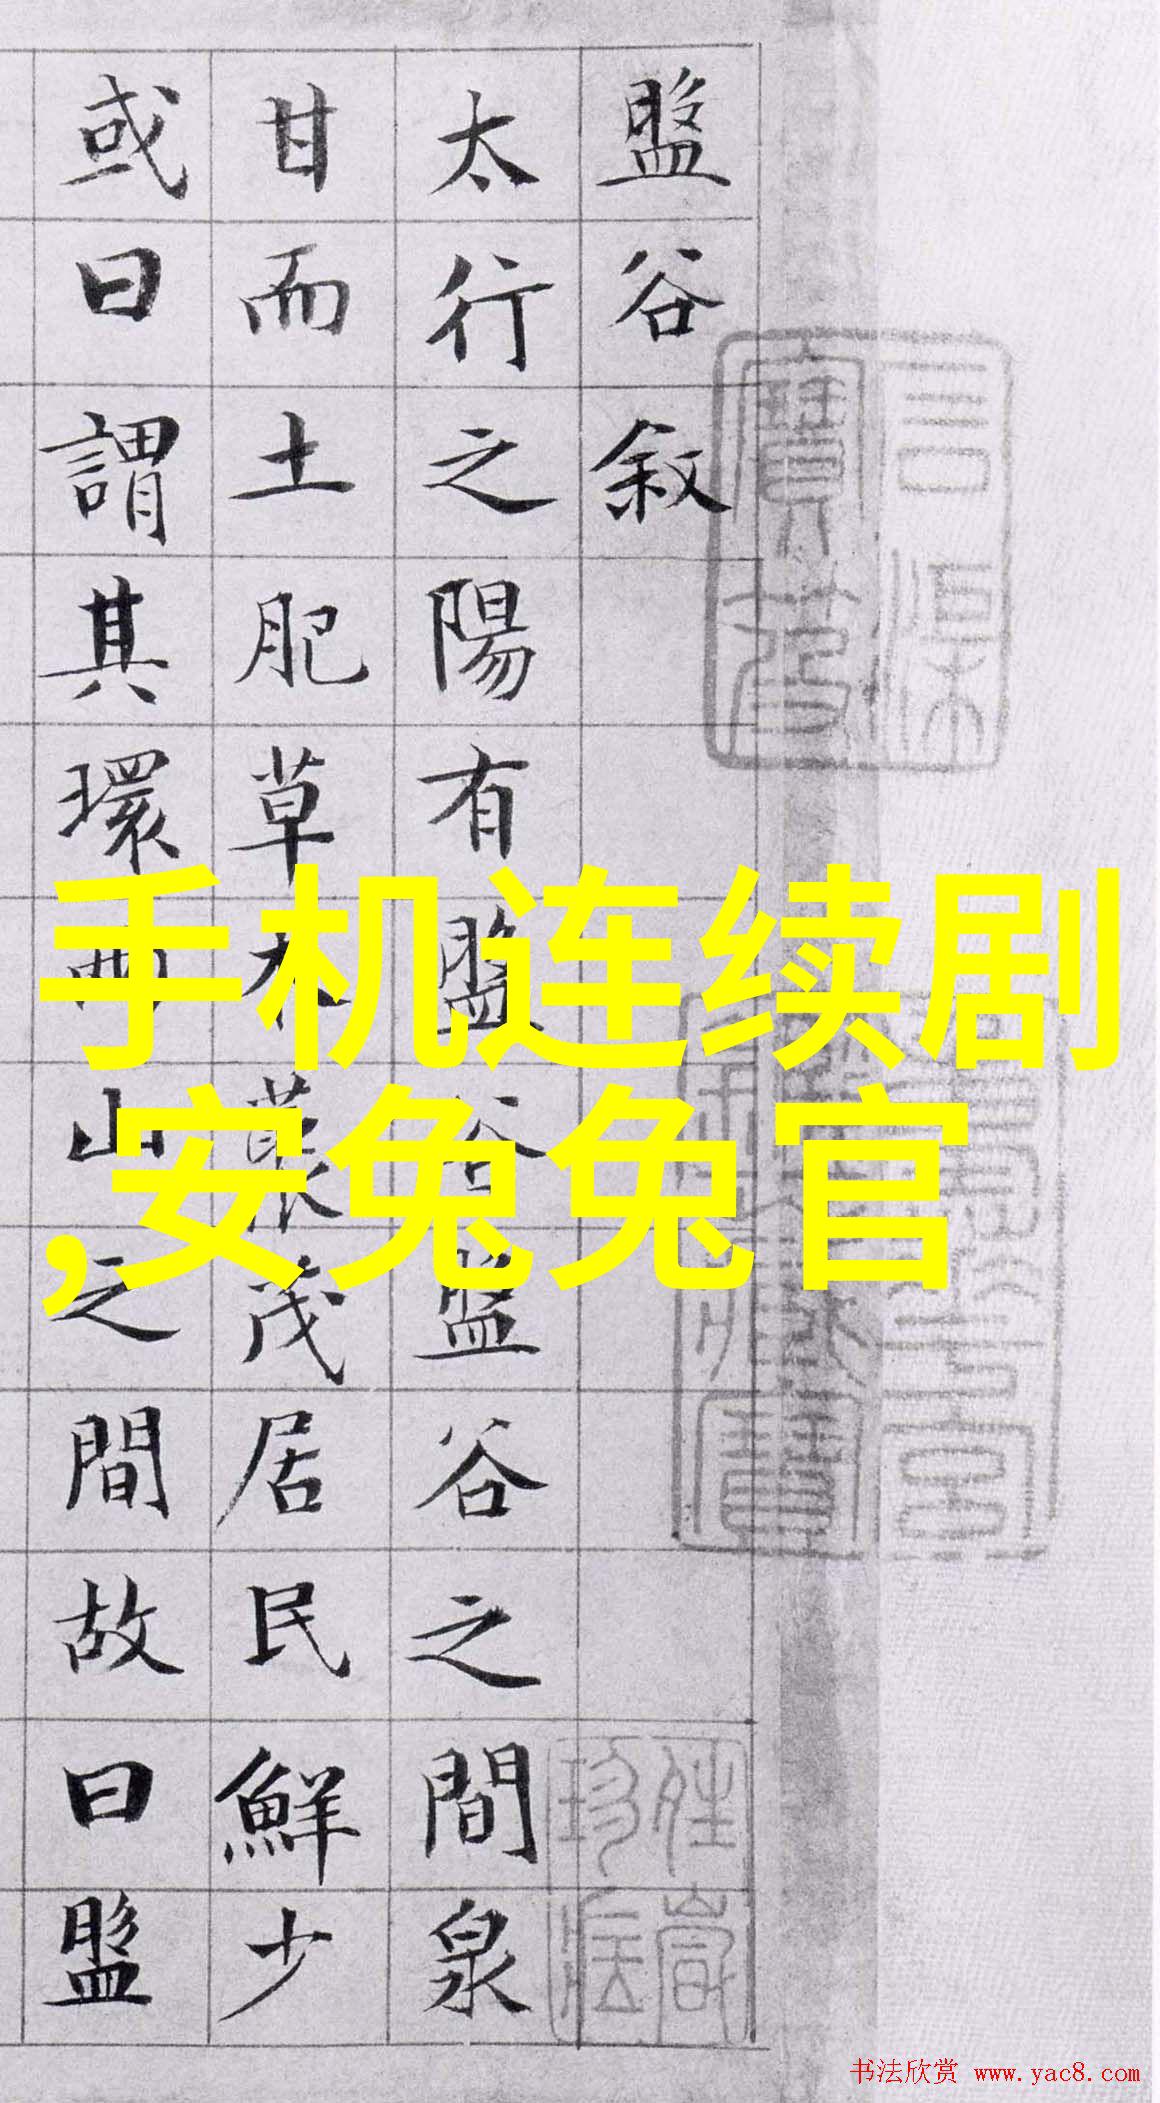 盤谷敘
太行之陽有盤谷盤谷之間泉
甘而土肥草木藂茂居民鮮少
或曰謂其環兩山之間故曰盤
手机连续剧
,安兔兔官
书法欣赏 www.yac8.com